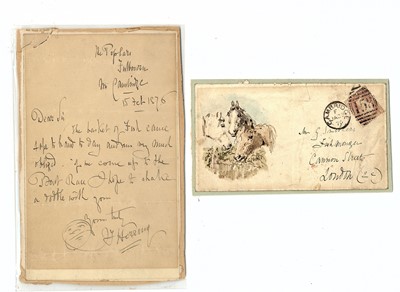 The Poplars
Fulbourn
Nr Cambridge
15 Feb 1876
Dear Sir
The basket of Fish came
safe to hand to day and am very much
obliged. If you come up to the
Boat Race I hope to shake
a with you
Yours
Mr G
Fishmonger
Cannon Street
London